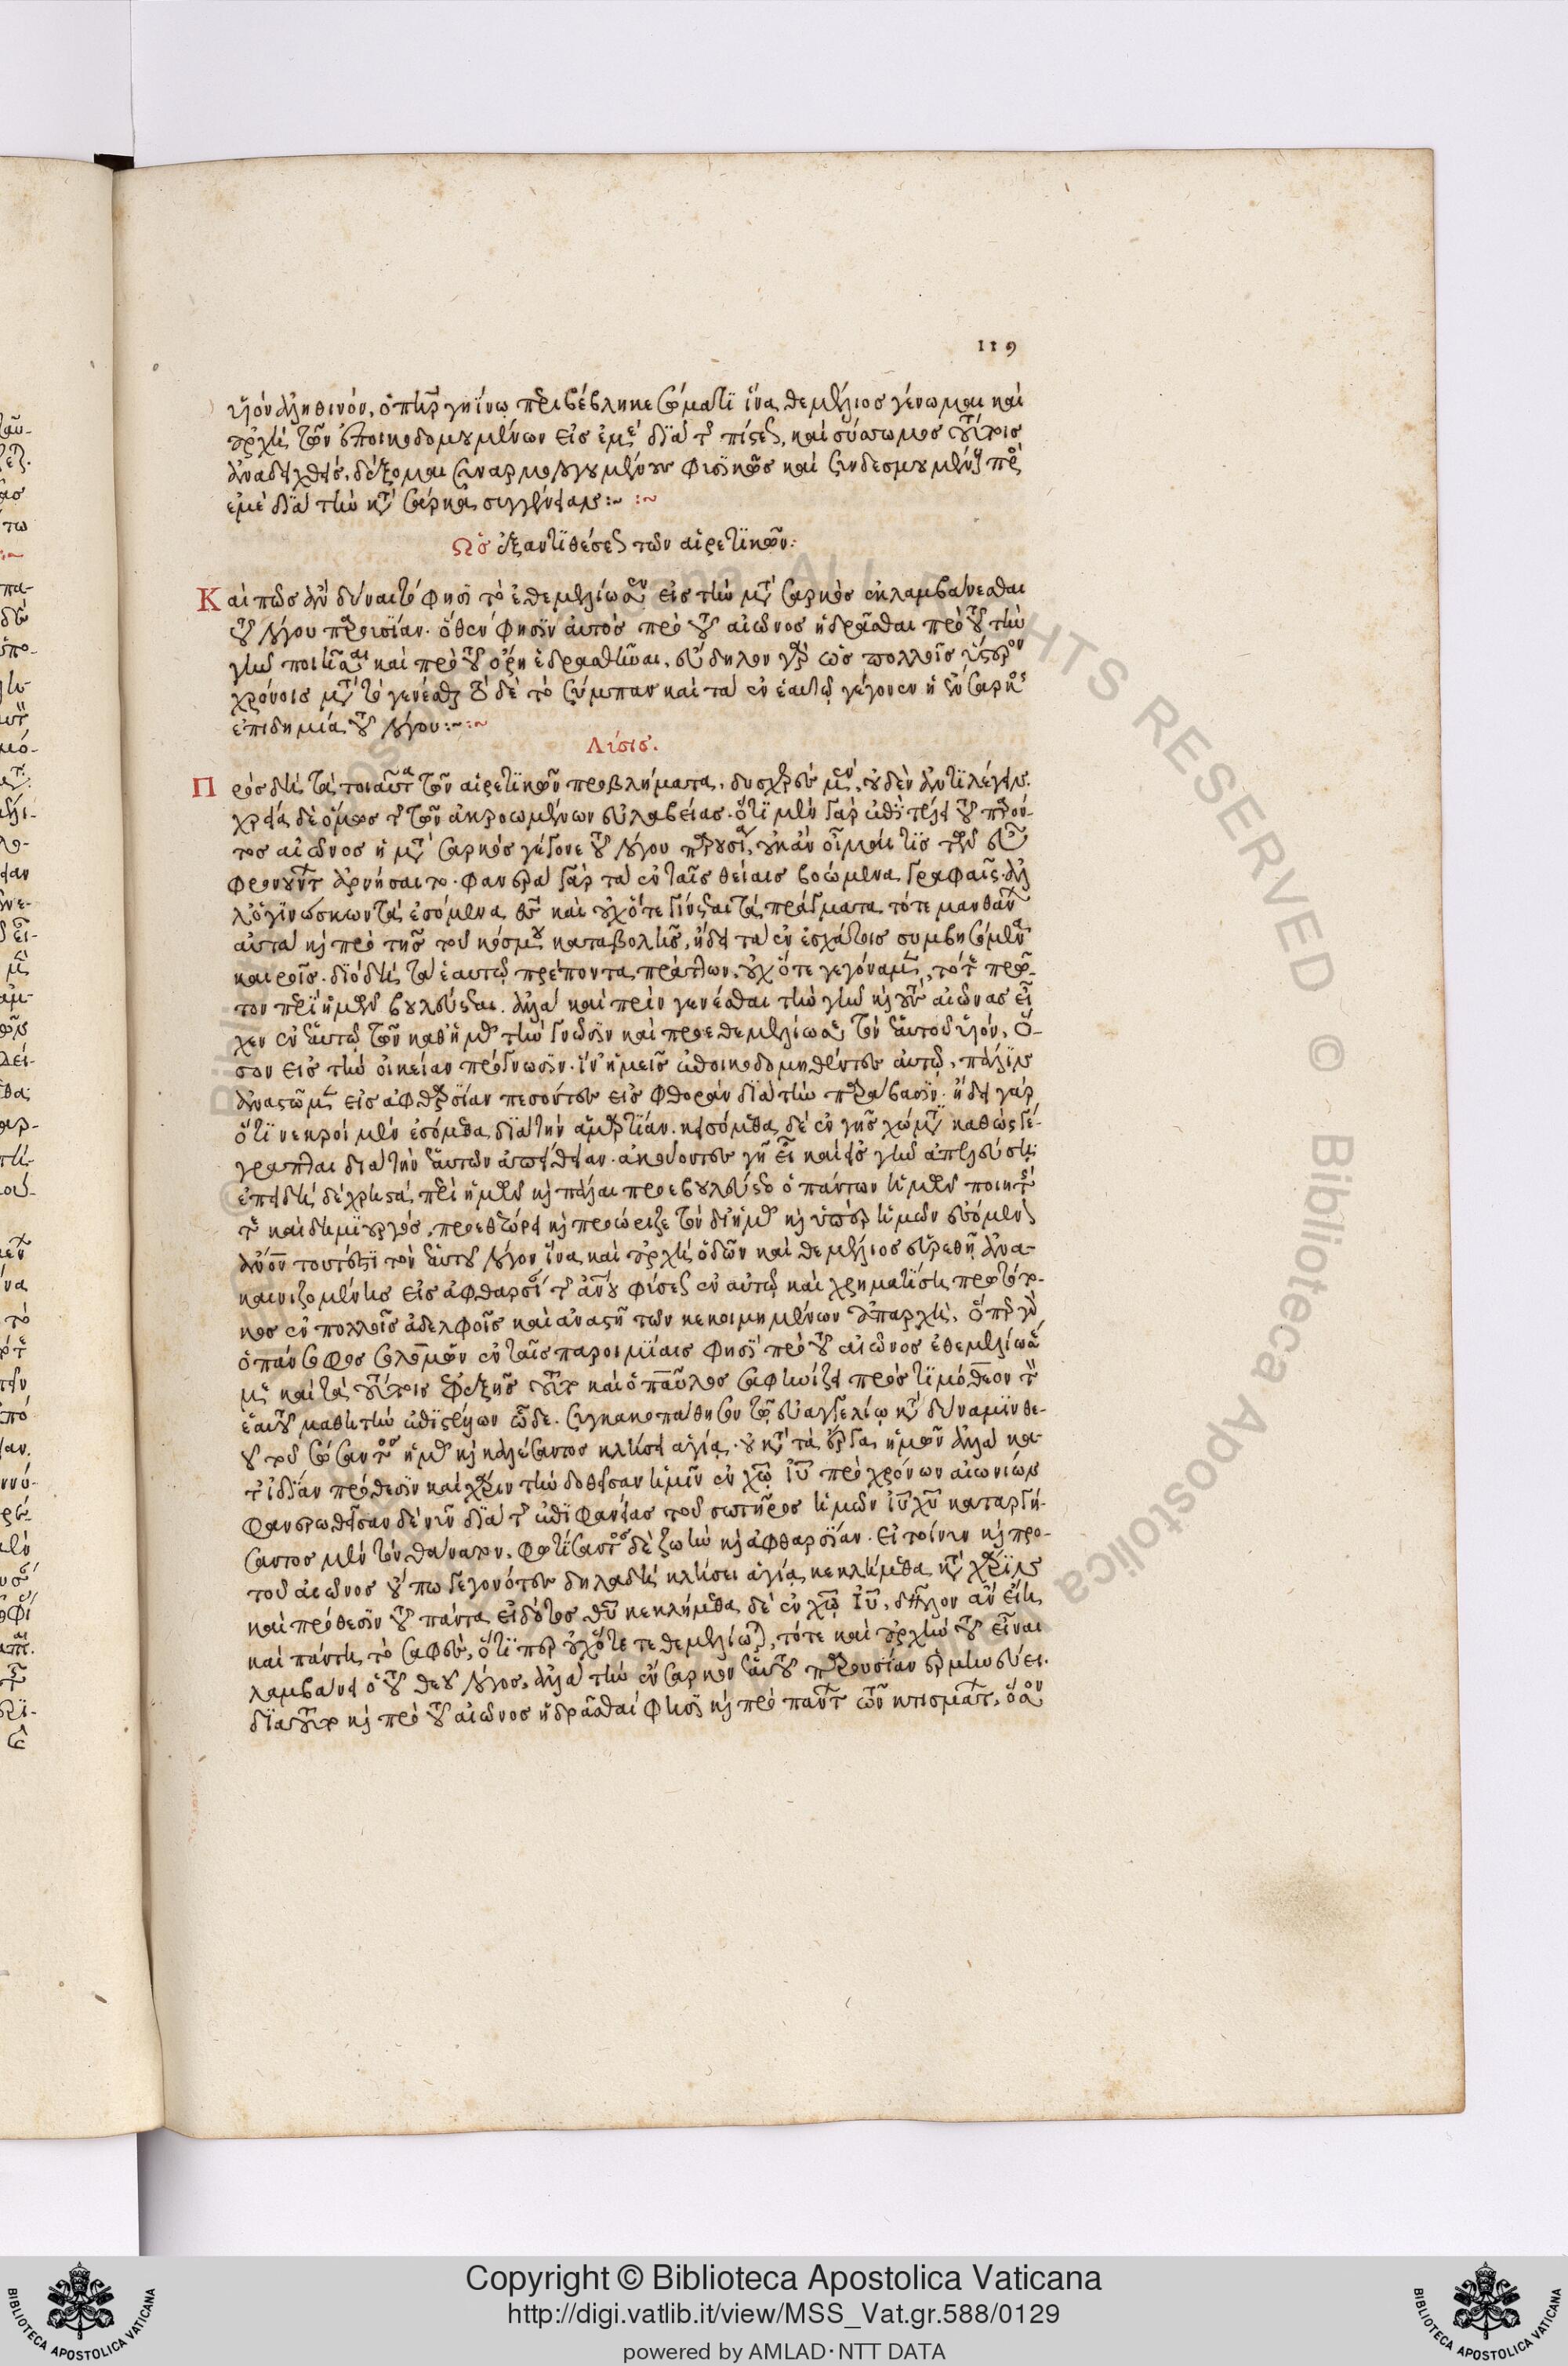 119
υἱὸν ἀληθινόν, ὅπερ γηίνῳ περιβέβληκε σώματι ἵνα θεμέλιος γένωμαι καὶ
ἀρχὴ τῶν ἐποικοδομουμένων εἰς ἐμὲ διὰ τῆς πίστεως, καὶ σύσσωμος τούτοις
ἀναδειχθεὶς, δέξομαι συναρμολογουμένους φυσικῶς καὶ συνδεσμουμένους πρὸς
ἐμὲ διὰ τὴν κατὰ σάρκα συγγένειαν :~ :~
Ὡς ἐξ ἀντιθέσεως τῶν αἱρετικῶν:
Καὶ πῶς ἂν δύναιτο φησὶ τὸ ἐθεμελίωσεν εἰς τὴν μετὰ σαρκὸς ἐκλαμβάνεσθαι
τοῦ λόγου παρουσίαν. ὅθεν φησὶν αὐτὸς πρὸ τοῦ αἰῶνος ἡδρᾶσθαι πρὸ τοῦ τὴν
γῆν ποιῆσαι καὶ πρὸ τοῦ ὄρη ἑδρασθῆναι, εὔδηλον γὰρ ὡς πολλοῖς ὕστερον
χρόνοις μετὰ τὸ γενέσθαι τόδε τὸ σύμπαν καὶ τὰ ἐν ἑαυτῷ γέγονεν ἡ ἐν σαρκὶ
ἐπιδημία τοῦ λόγου :~ :~
Λύσις.
Πρὸς δὴ τὰ τοιαῦτα τῶν αἱρετικῶν προβλήματα, δυσχερὲς μὲν, οὐδὲν ἀντιλέγειν.
χρεία δὲ ὅμως τῆς τῶν ἀκροωμένων εὐλαβείας. ὅτι μὲν γὰρ ἐπὶ τέλει τοῦ παρόν-
τος αἰῶνος ἡ μετὰ σαρκὸς γέγονε τοῦ λόγου παρουσία, οὐκ ἂν οἶμαί τις τῶν εὖ
φρονούντων ἀρνήσαιτο. φανερὰ γὰρ τὰ ἐν ταῖς θείαις βοώμενα γραφαῖς. ἀλ
λ' ὁ γινώσκων τὰ ἐσόμενα θεὸς καὶ οὐχ ὅτε γίνεται τὰ πράγματα τότε μανθάνων
αὐτὰ καὶ πρὸ τῆς τοῦ κόσμου καταβολῆς, ᾔδει τὰ ἐν ἐσχάτοις συμβησόμενα
καιροῖς. διὸ δὴ τὰ ἑαυτῷ πρέποντα πράττων, οὐχ ὅτε γεγόναμεν, τότε πρῶ-
τον περὶ ἡμῶν βουλεύεται. ἀλλὰ καὶ πρὶν γενέσθαι τὴν γῆν καὶ τοὺς αἰῶνας εἶ
χεν ἐν ἑαυτῷ τῶν καθ' ἡμᾶς τὴν γνῶσιν καὶ προεθεμελίωσε τὸν ἑαυτοῦ υἱόν, ὅ-
σον εἰς τὴν οἰκείαν πρόγνωσιν. ἵν' ἡμεῖς ἐποικοδομηθέντες αὐτῷ, πάλιν
ἀναστῶμεν εἰς ἀφθαρσίαν πεσόντες εἰς φθορὰν διὰ τὴν παράβασιν. ᾔδει γὰρ
ὅτι νεκροὶ μὲν ἐσόμεθα διὰ τὴν ἁμαρτίαν. κεισόμεθα δὲ ἐν γῆς χώματι καθὼς γέ-
γραπται διὰ τὴν ἑαυτῶν ἀπείθειαν. ἀκούοντες γῆ εἶ καὶ εἰς γῆν ἀπελεύσῃ.
ἐπειδὴ δὲ χρηστὰ περὶ ἡμῶν καὶ πάλαι προεβουλεύετο ὁ πάντων ἡμῶν ποιητής
τε καὶ δημιουργὸς, προεθεώρει καὶ προώριζε τὸν δι' ἡμᾶς καὶ ὑπὲρ ἡμῶν ἐσόμενον
ἄνον τουτέστι τὸν ἑαυτοῦ λόγον, ἵνα καὶ ἀρχὴ ὁδῶν καὶ θεμέλιος εὑρεθῇ ἀνα-
καινιζομένης εἰς ἀφθαρσίαν τῆς ἀνου φύσεως ἐν αὐτῷ καὶ χρηματίσῃ πρωτότο-
κος ἐν πολλοῖς ἀδελφοῖς καὶ ἀναστῇ τῶν κεκοιμημένων ἀπαρχὴ. ὅπερ οὖν
ὁ πάνσοφος σολομῶν ἐν ταῖς παροιμίαις φησὶ πρὸ τοῦ αἰῶνος ἐθεμελίωσέ
με καὶ τὰ τούτοις ἐφεξῆς τοῦτο καὶ ὁ παῦλος σαφηνίζει πρὸς τιμόθεον τὸν
ἑαυτοῦ μαθητὴν ἐπιστέλλων ὧδε. συγκακοπάθησον τῷ εὐαγγελίῳ κατὰ δύναμιν θε-
οῦ τοῦ σώσαντος ἡμᾶς καὶ καλέσαντος κλήσει ἁγίᾳ. οὐ κατὰ τὰ ἔργα ἡμῶν ἀλλὰ κα-
τ' ἰδίαν πρόθεσιν καὶ χάριν τὴν δοθεῖσαν ἡμῖν ἐν χω ιυ πρὸ χρόνων αἰωνίων
φανερωθεῖσαν δὲ νῦν διὰ τῆς ἐπιφανείας τοῦ σωτῆρος ἡμῶν ιυ χυ καταργή-
σαντος μὲν τὸν θάνατον, φωτίσαντος δὲ ζωὴν καὶ ἀφθαρσίαν. εἰ τοίνυν καὶ πρὸ
τοῦ αἰῶνος οὔπω γεγονότες δηλαδὴ κλήσει ἁγίᾳ κεκλήμεθα κατὰ χάριν
καὶ πρόθεσιν τοῦ πάντα εἰδότος θυ κεκλήμεθα δὲ ἐν χω ιυ, δῆλον ἂν εἴη
καὶ πάντη τὸ σαφὲς, ὅτιπερ οὐχ ὅτε τεθεμελίωται, τότε καὶ ἀρχὴν τοῦ εἶναι
λαμβάνει ὁ τοῦ θεοῦ λόγος, ἀλλὰ τὴν ἔνσαρκον ἑαυτοῦ παρουσίαν ἑρμηνεύει.
διὰ τοῦτο καὶ πρὸ τοῦ αἰῶνος ἡδρᾶσθαί φησι καὶ πρὸ πάντων τῶν κτισμάτων, ὅσον
Copyright © Biblioteca Apostolica Vaticana
http://digi.vatlib.it/view/MSS_Vat.gr.588/0129
powered by AMLAD·NTT DATA